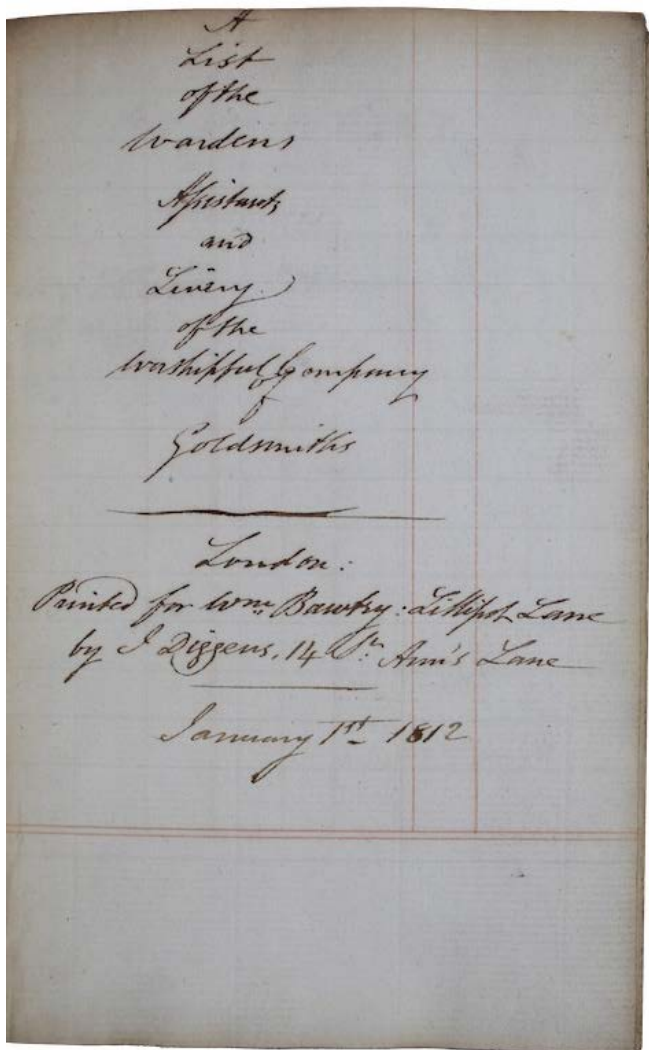 A
List
of the
Wardens
Assistants
and
Livery
of the
Worshipful Company
of
Goldsmiths
London:
Printed for Wm. Bawtry: Lillipot Lane
by I Diggens, 14 St. Ann's Lane
January 1st 1812